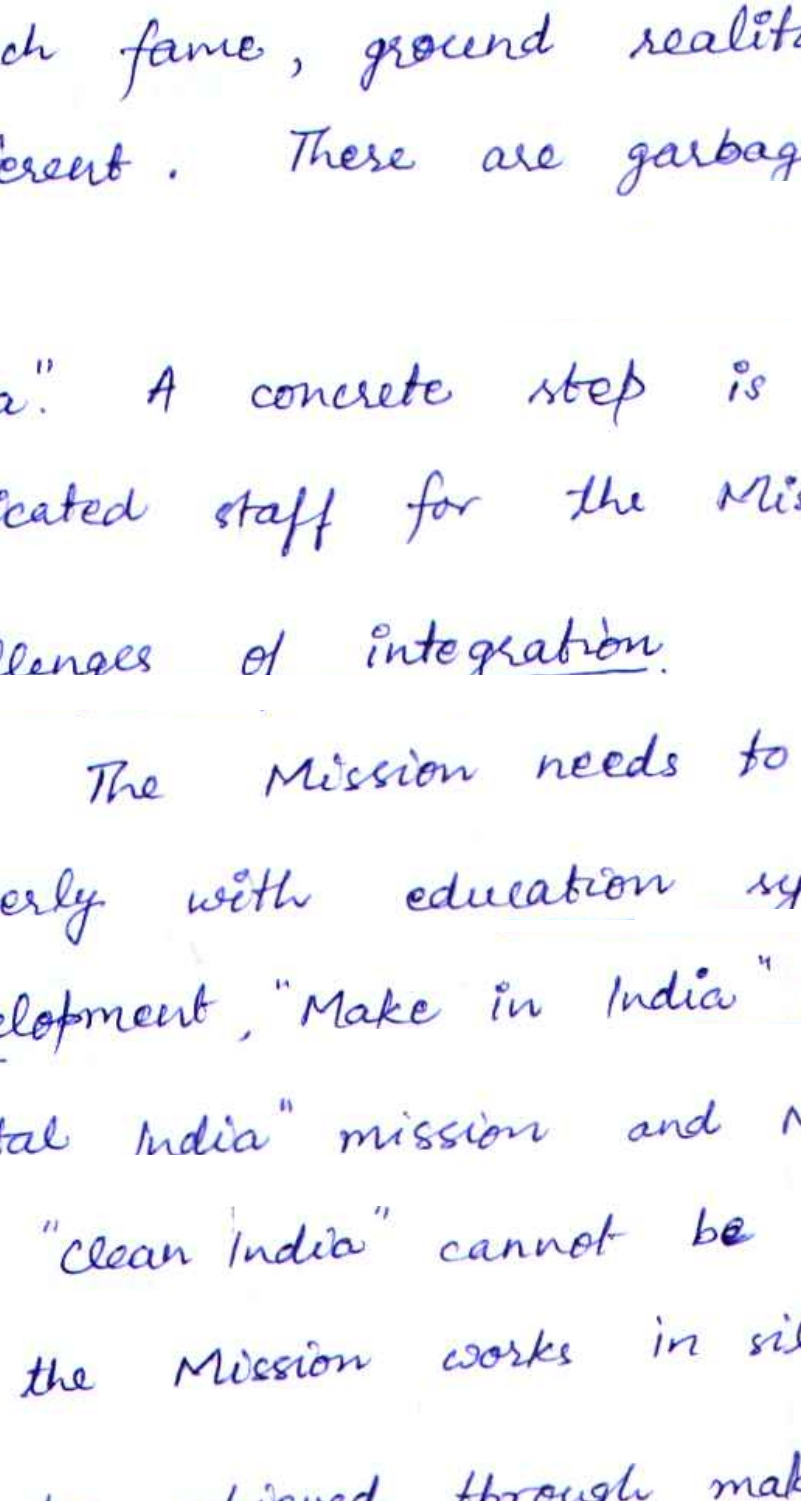 ch fame, ground realit
erent. There are garbag
a". A concrete step is
icated staff for the Mis
llenges of integration.
The Mission needs to
erly with education sy
elopment, "Make in India"
tal India" mission and N
"Clean India" cannot be
the Mission works in sil
through mak